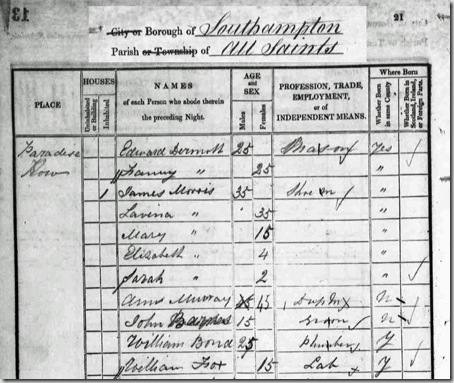 13
21
City or Borough of Southampton
Parish or Township of All Saints
PLACE
HOUSES
Uninhabited or Building
Inhabited
NAMES of each Person who abode therein the preceding Night.
AGE and SEX
Males
Females
PROFESSION, TRADE, EMPLOYMENT, or of INDEPENDENT MEANS.
Where Born
Whether Born in same County
Whether Born in Scotland, Ireland, or Foreign Parts.
Paradise Row
Edward Dermott 25 Mason Yes
Fanny " 25 "
1 James Morris 35 Shoe m "
Lavina " 35 "
Mary " 15 "
Elizabeth " 4 "
Sarah " 2 "
Ann Murray 45 N
John 15 N
William Bond 25 Plumber Y
William Fox 15 Lab Y